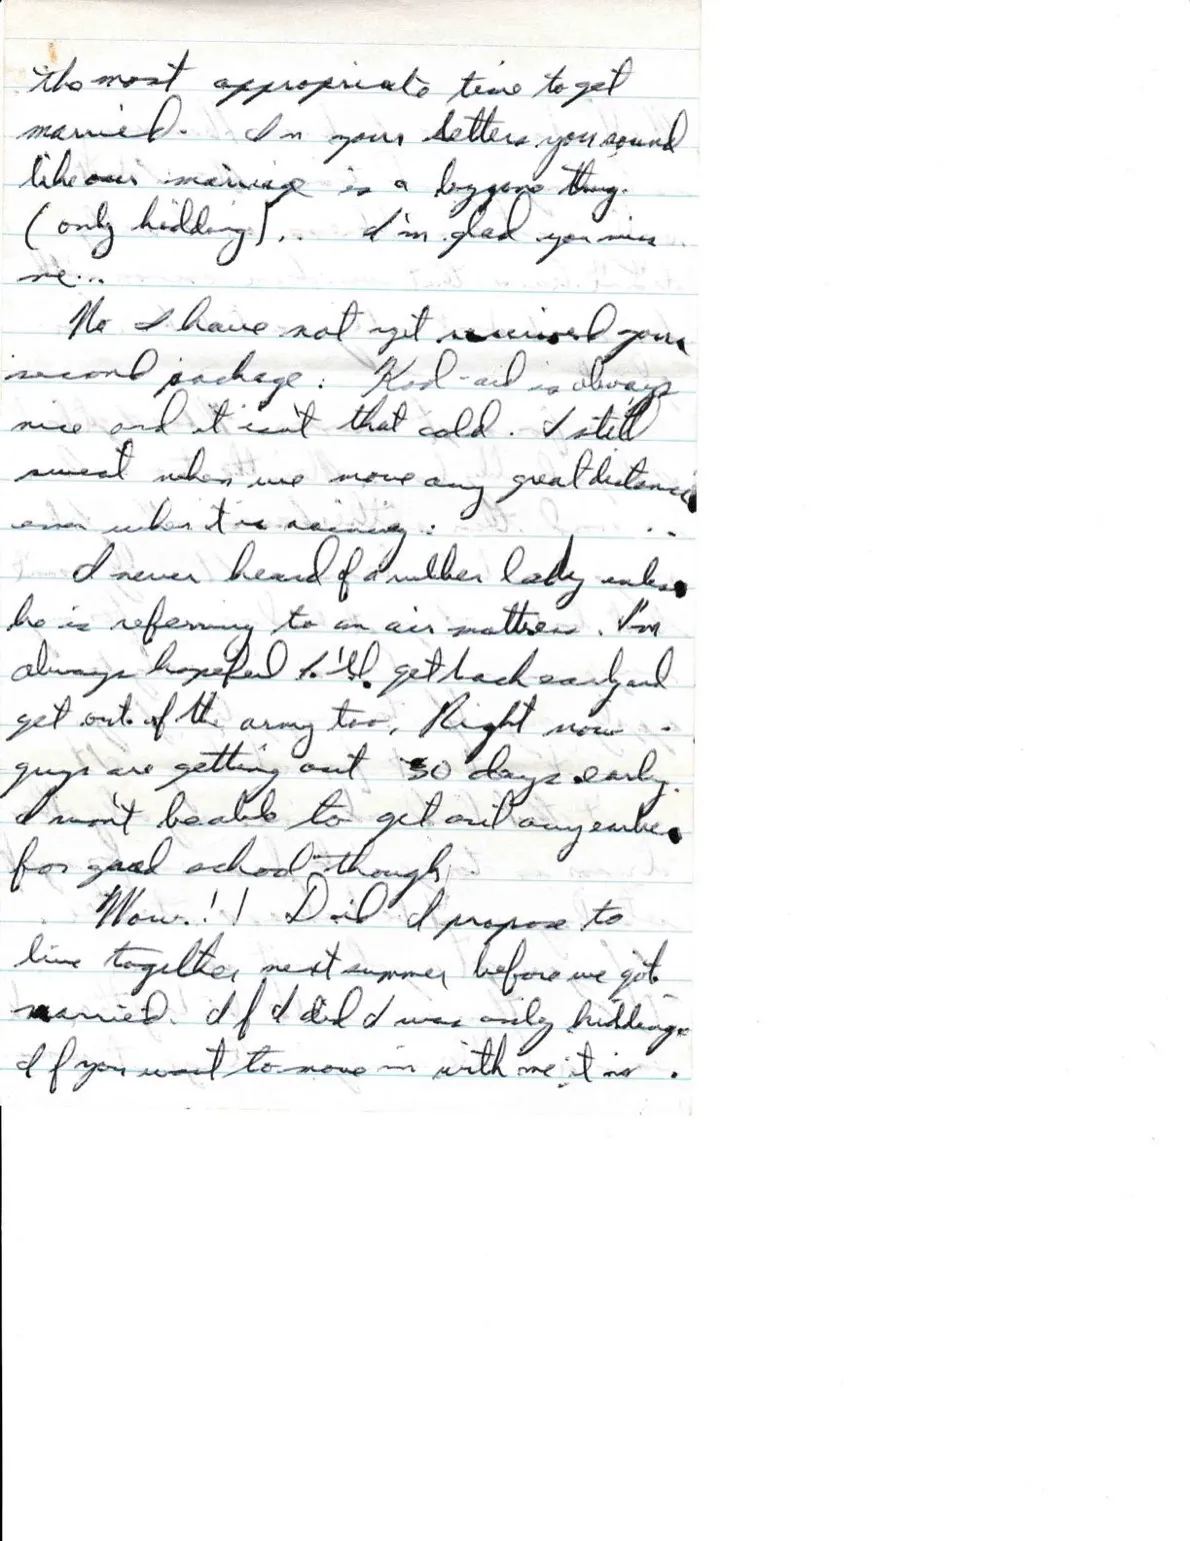 the most appropriate time to get
married. In your letters you sound
like our marriage is a bygone thing.
(only kidding)... I'm glad you miss
me...
No I have not yet received your
second package. Kool-aid is always
nice and it isn't that cold. I still
sweat when we move any great distance
even when it is raining.
I never heard of a rubber lady unless
he is referring to an air mattress. I'm
always hopeful I'll get back early and
get out of the army too. Right now
guys are getting out 30 days early.
I won't be able to get out any earlier
for grad school though.
Wow!! Did I propose to
live together next summer before we got
married. If I did I was only kidding.
If you want to move in with me it is